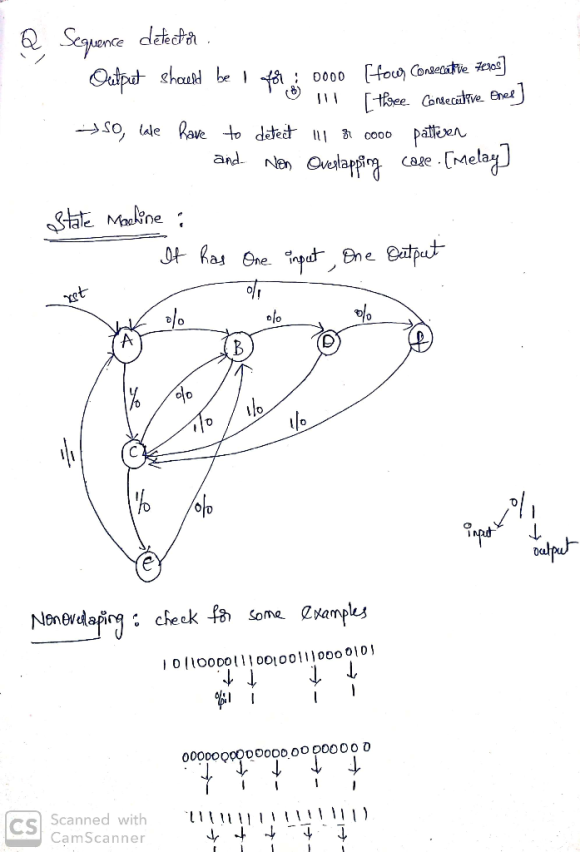 Q, Sequence detector.
Output should be 1 for : 0000 [four Consecative zeros]
(or) 111 [three Consecutive Ones]
→ so, we have to detect 111 or 0000 patteren
and Non Overlapping case. [Melay]
State Machine :
It has One input, One Output
rst
0/1
0/0 0/0 0/0
A B D
1/0 0/0 1/0 1/0 1/0
C
1/1 1/0 0/0
e
0/1
input output
Nonovelaping : check for some examples
101100001110010011100000101
1 1 1
0000000000000000000000
1 1 1 1
CS Scanned with
CamScanner